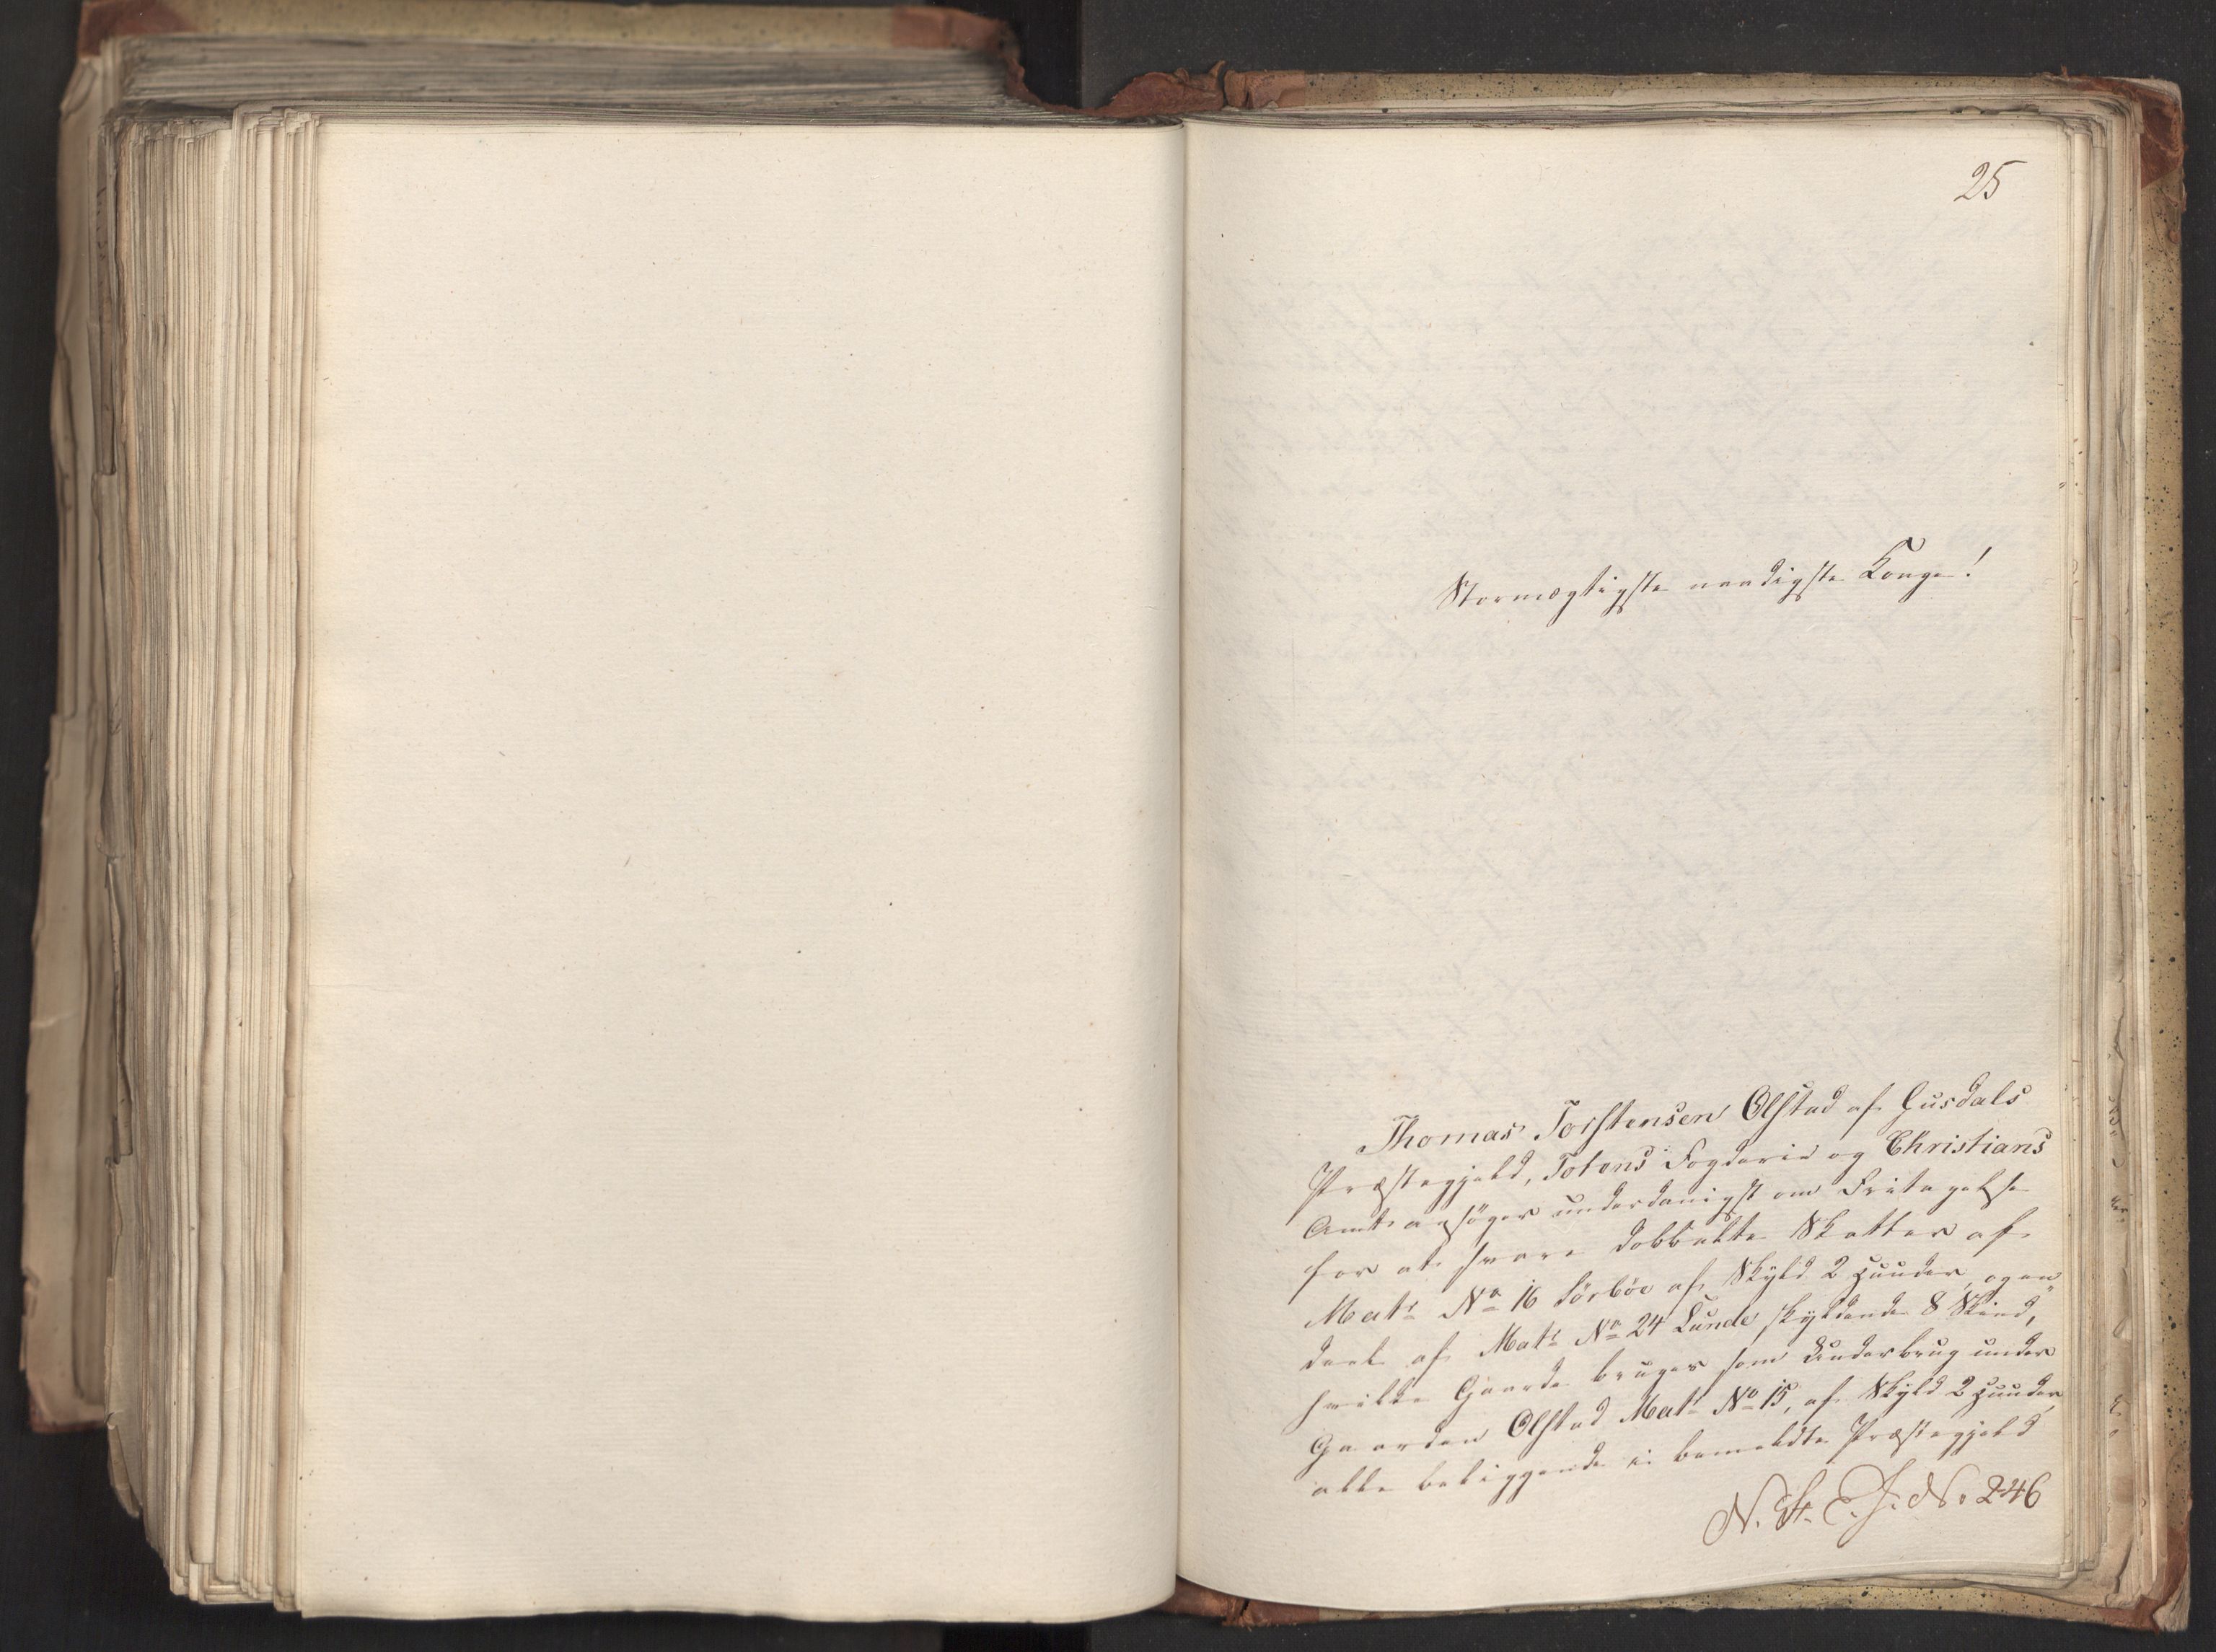 25
Stormægtigste naadigste Konge!
Thomas Torstensen Olstad af Gusdals
Præstegjeld, Totens Fogderie og Christians
Amt ansøger underdanigst om Fritagelse
for at svare dobbelte Skatter af
Matr No 16 Sørbøe af Skyld 2 Huuder, og en
Deel af Matr No 24 Lunde skyldende 8 Skind,
hvilke Gaarde bruges som Underbrug under
Gaarden Olstad Matr No 15, af Skyld 2 Huuder,
alle beliggende i bemeldte Præstegjeld
N. St. C. J. No. 246